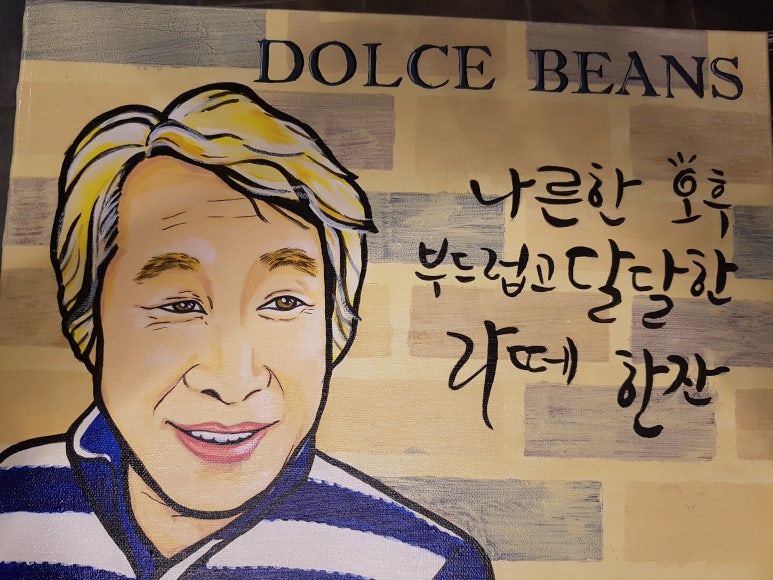 DOLCE BEANS
나른한 오후
부드럽고 달달한
라떼 한잔